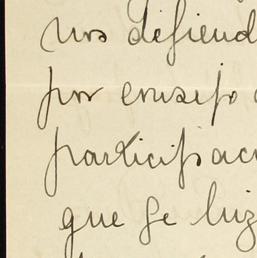 nos defiend
por consejo
participac
que se luz